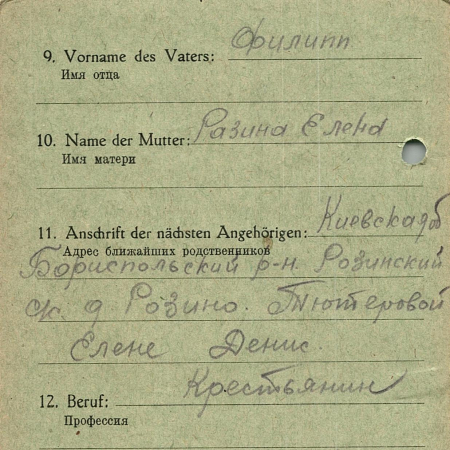 9. Vorname des Vaters: Филипп
Имя отца
10. Name der Mutter: Разина Елена
Имя матери
11. Anschrift der nächsten Angehörigen: Киевская об
Адрес ближайших родственников
Бориспольский р-н. Розинский
д Розино. Тютеровой
Елене Денис.
12. Beruf: Крестьянин
Профессия